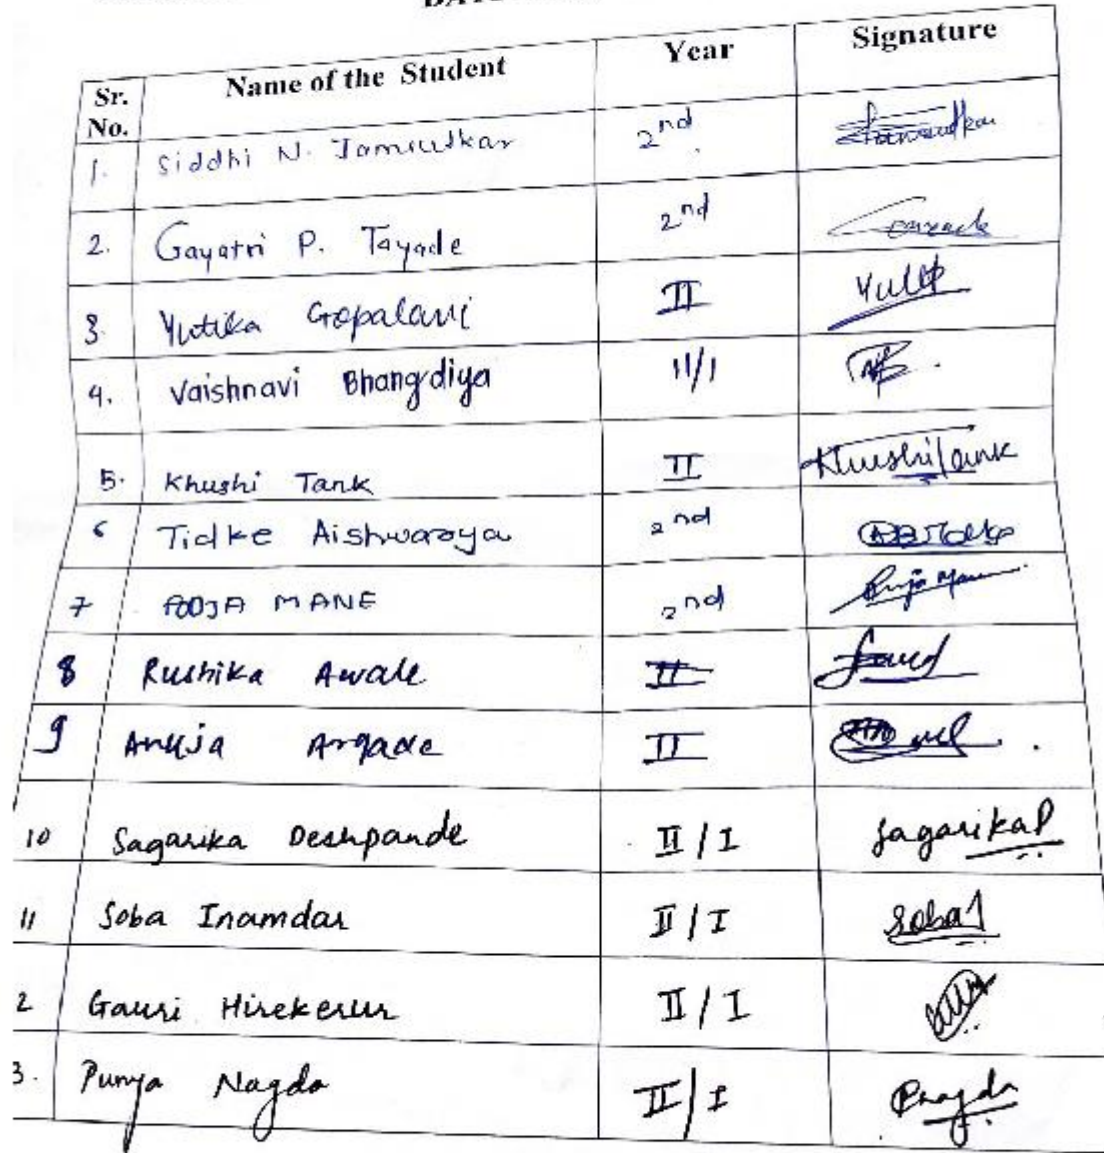 Sr. No. Name of the Student Year Signature
1. Siddhi N. Jamutkar 2nd
2. Gayatri P. Tayade 2nd
3. Yutika Gopalani II
4. Vaishnavi Bhangdiya II/I
5. Khushi Tank II KhushiTank
6 Tidke Aishwarya 2nd
7 POOJA MANE 2nd Puja Mane
8 Rushika Awale II
9 Anuja Argade II
10 Sagarika Deshpande II/I Sagarika D
11 Soba Inamdar II/I Soba I
2 Gauri Hirekerur II/I
3. Punya Nagda II/I PNagda